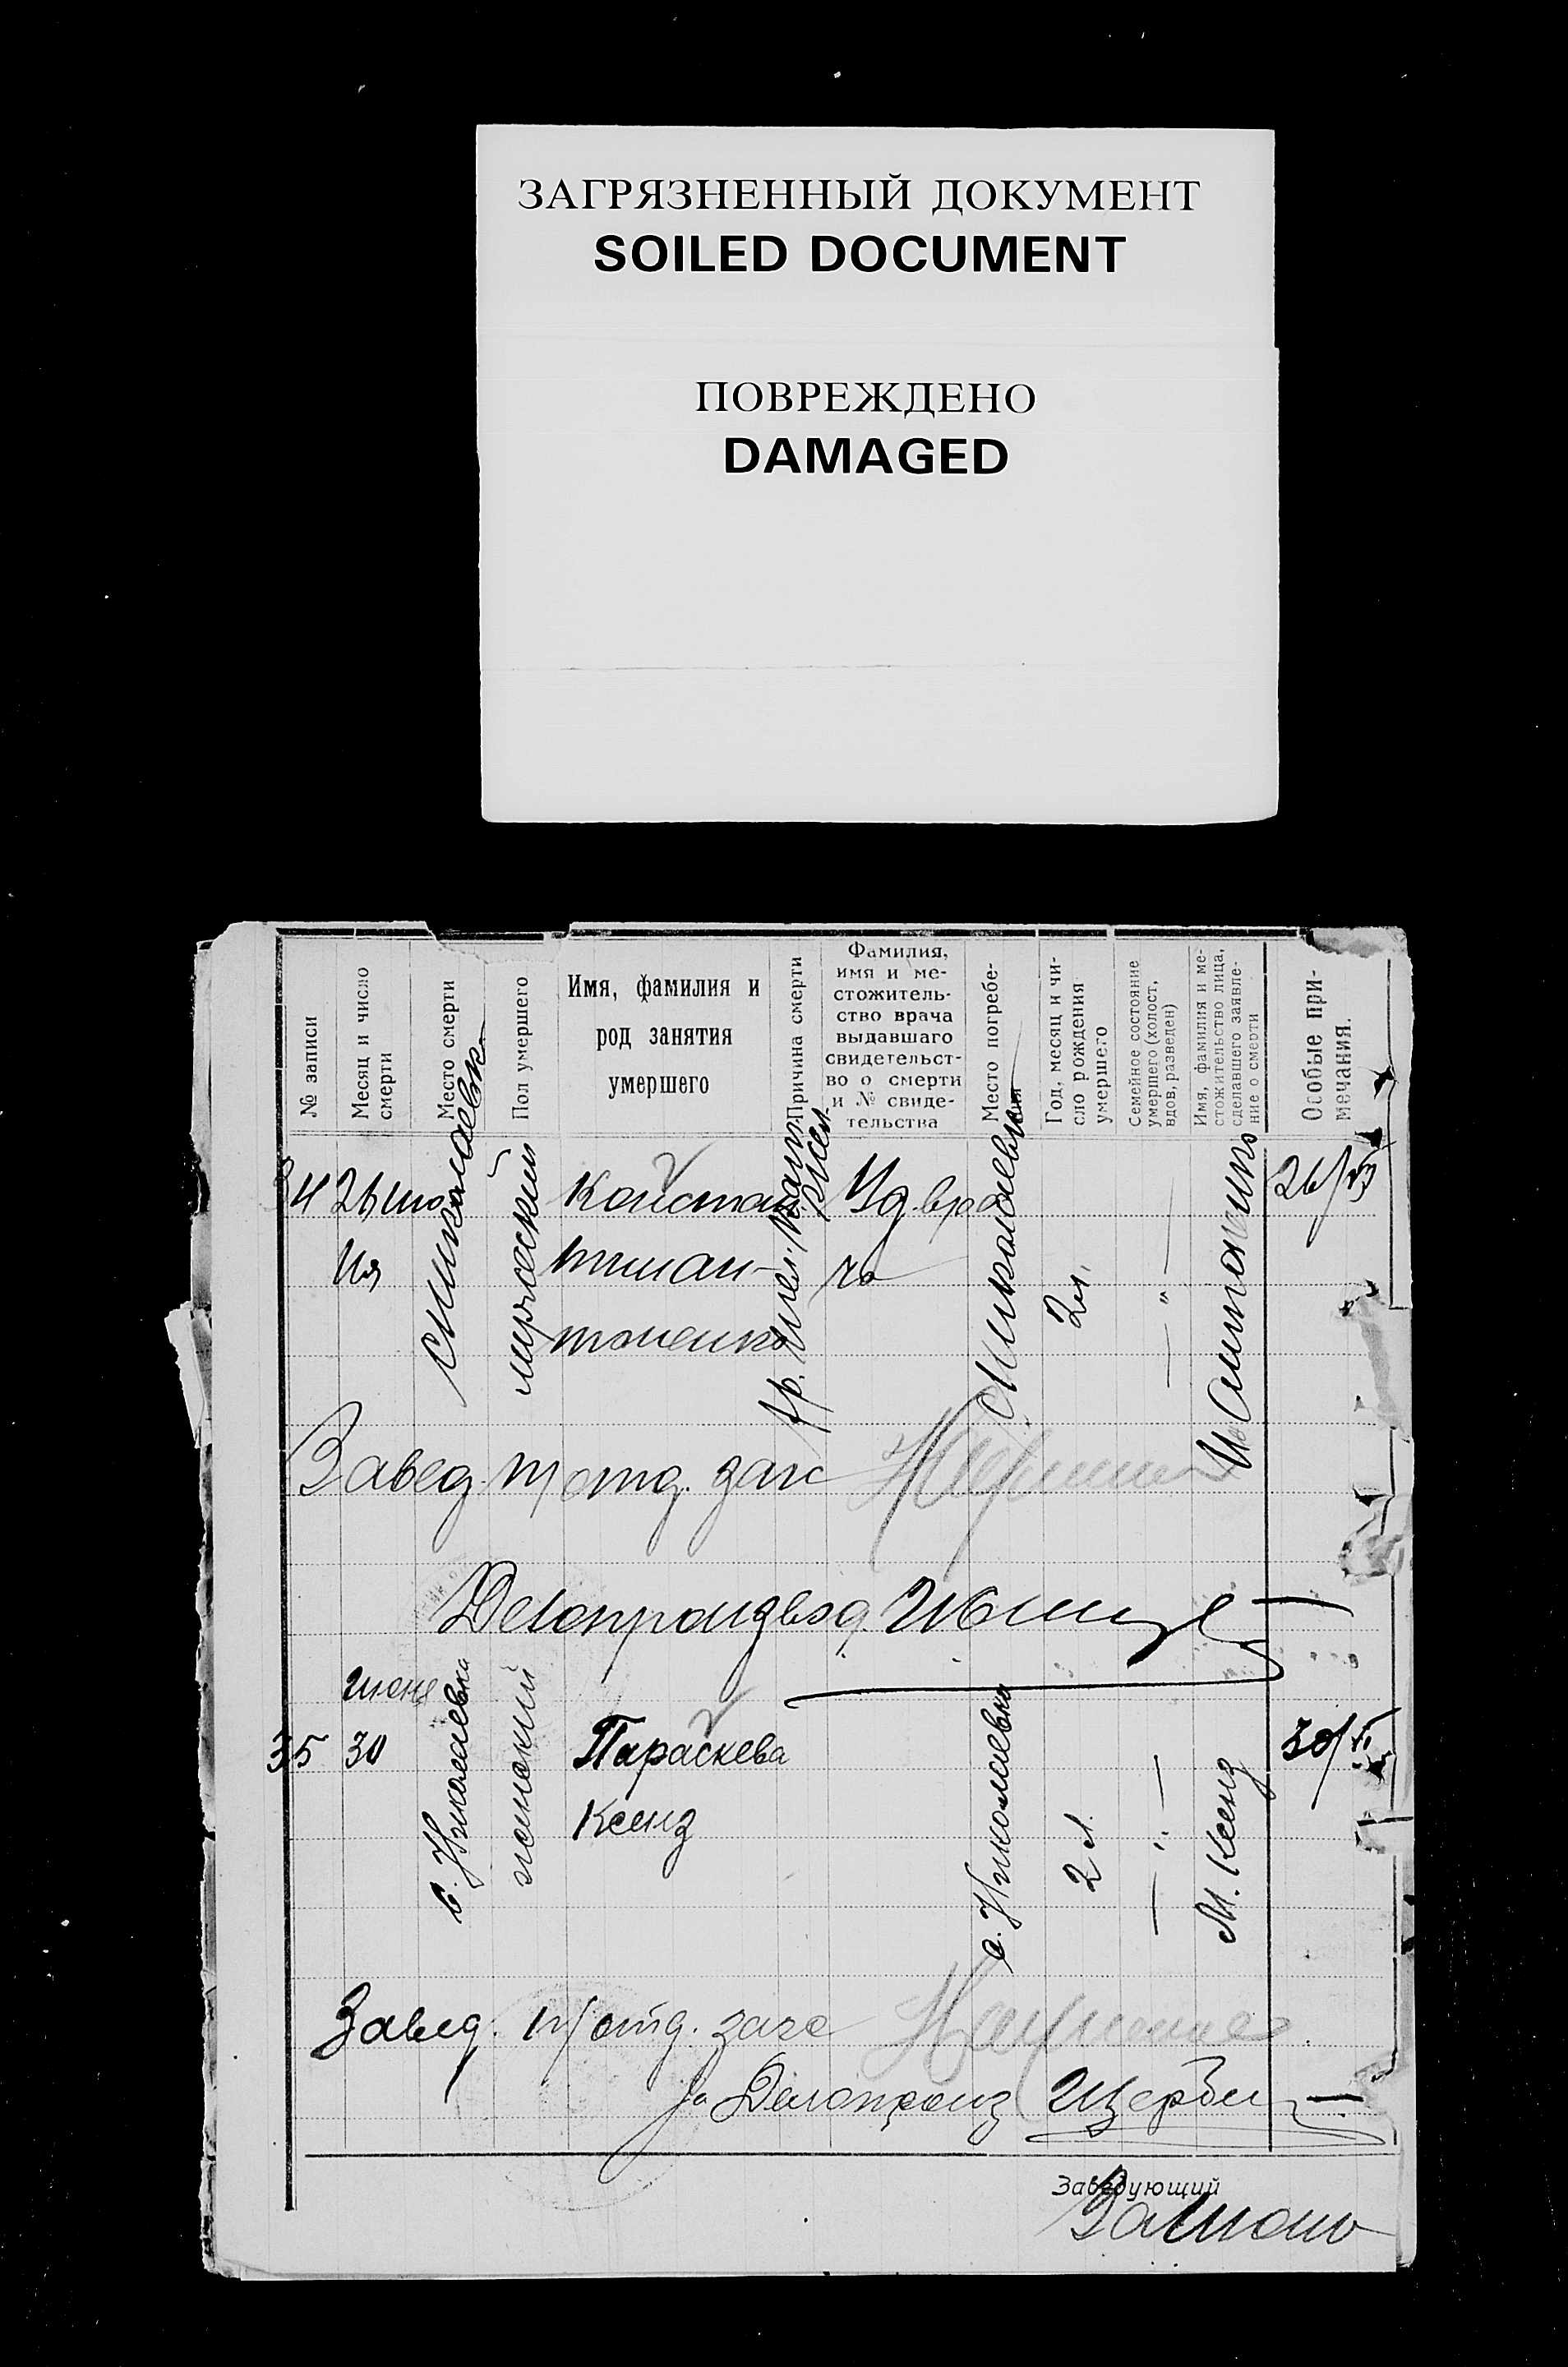 ЗАГРЯЗНЕННЫЙ ДОКУМЕНТ
SOILED DOCUMENT
ПОВРЕЖДЕНО
DAMAGED
№ записи
Месяц и число
смерти
Место смерти
Пол умершего
Имя, фамилия и
род занятия
умершего
Причина смерти
Фамилия,
имя и ме-
стожитель-
ство врача
выдавшаго
свидетельст-
во о смерти
и № свиде-
тельства
Место погребе-
ния
Год, месяц и чи-
сло рождения
умершего
Семейное состояние
умершего (холост,
вдов, разведен)
Имя, фамилия и ме-
стожительство лица,
сделавшего заявле-
ние о смерти
Особые при-
мечания.
34
26 ию
ня
с Николаевк
мужеский
Констан
тин Ан-
тоненко
с Николаевка
2 л.
"
Завед. п/отд. загс
Делопроизвод.
июня
35
30
с. Николаевка
женский
Параскева
Ксенз
с. Николаевка
2 л.
"
М. Ксенз
Завед. п/отд. загс
За Делопроиз
Заведующий